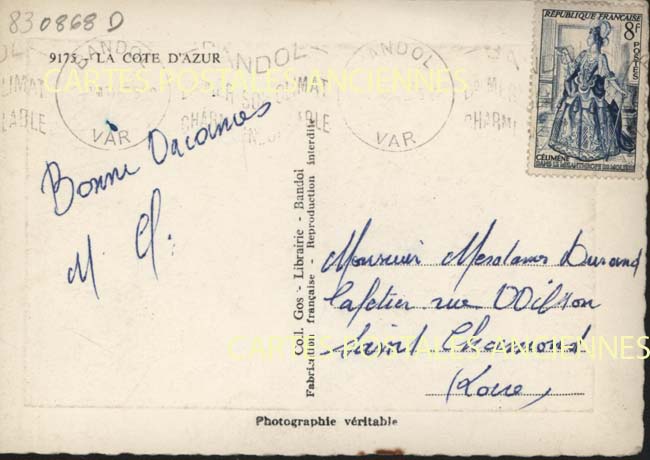 830868 D
9175 - LA COTE D'AZUR
BANDOL
VAR
BANDOL
VAR
CHARME
RÉPUBLIQUE FRANÇAISE
8F
POSTES
CÉLIMÈNE
DANS LE MISANTHROPE DE MOLIÈRE
CARTES POSTALES ANCIENNES
Bonnes Vacances
M. Cl.
Coll. Gos - Librairie - Bandol
Fabrication française - Reproduction interdite
Monsieur Mesdames Durand
Cafetier rue Wilson
Saint Chamond
(Loire)
CARTES POSTALES ANCIENNES
Photographie véritable